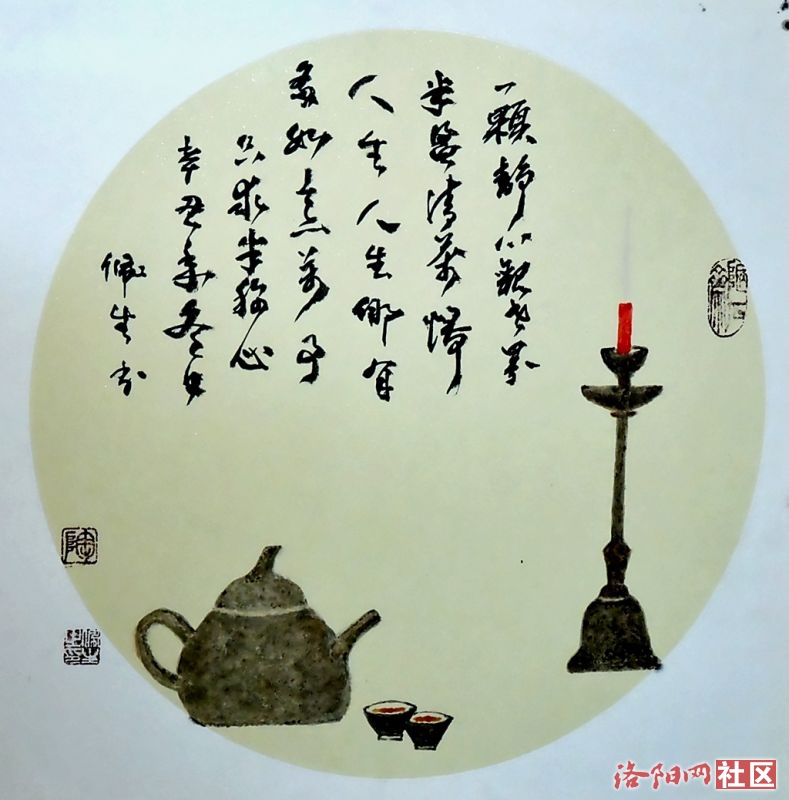 一颗静心观世界
半盏清茶悟
人生人生哪有
多如意万事
只求半称心
辛丑年冬月
佩生书
陶
洛阳网社区